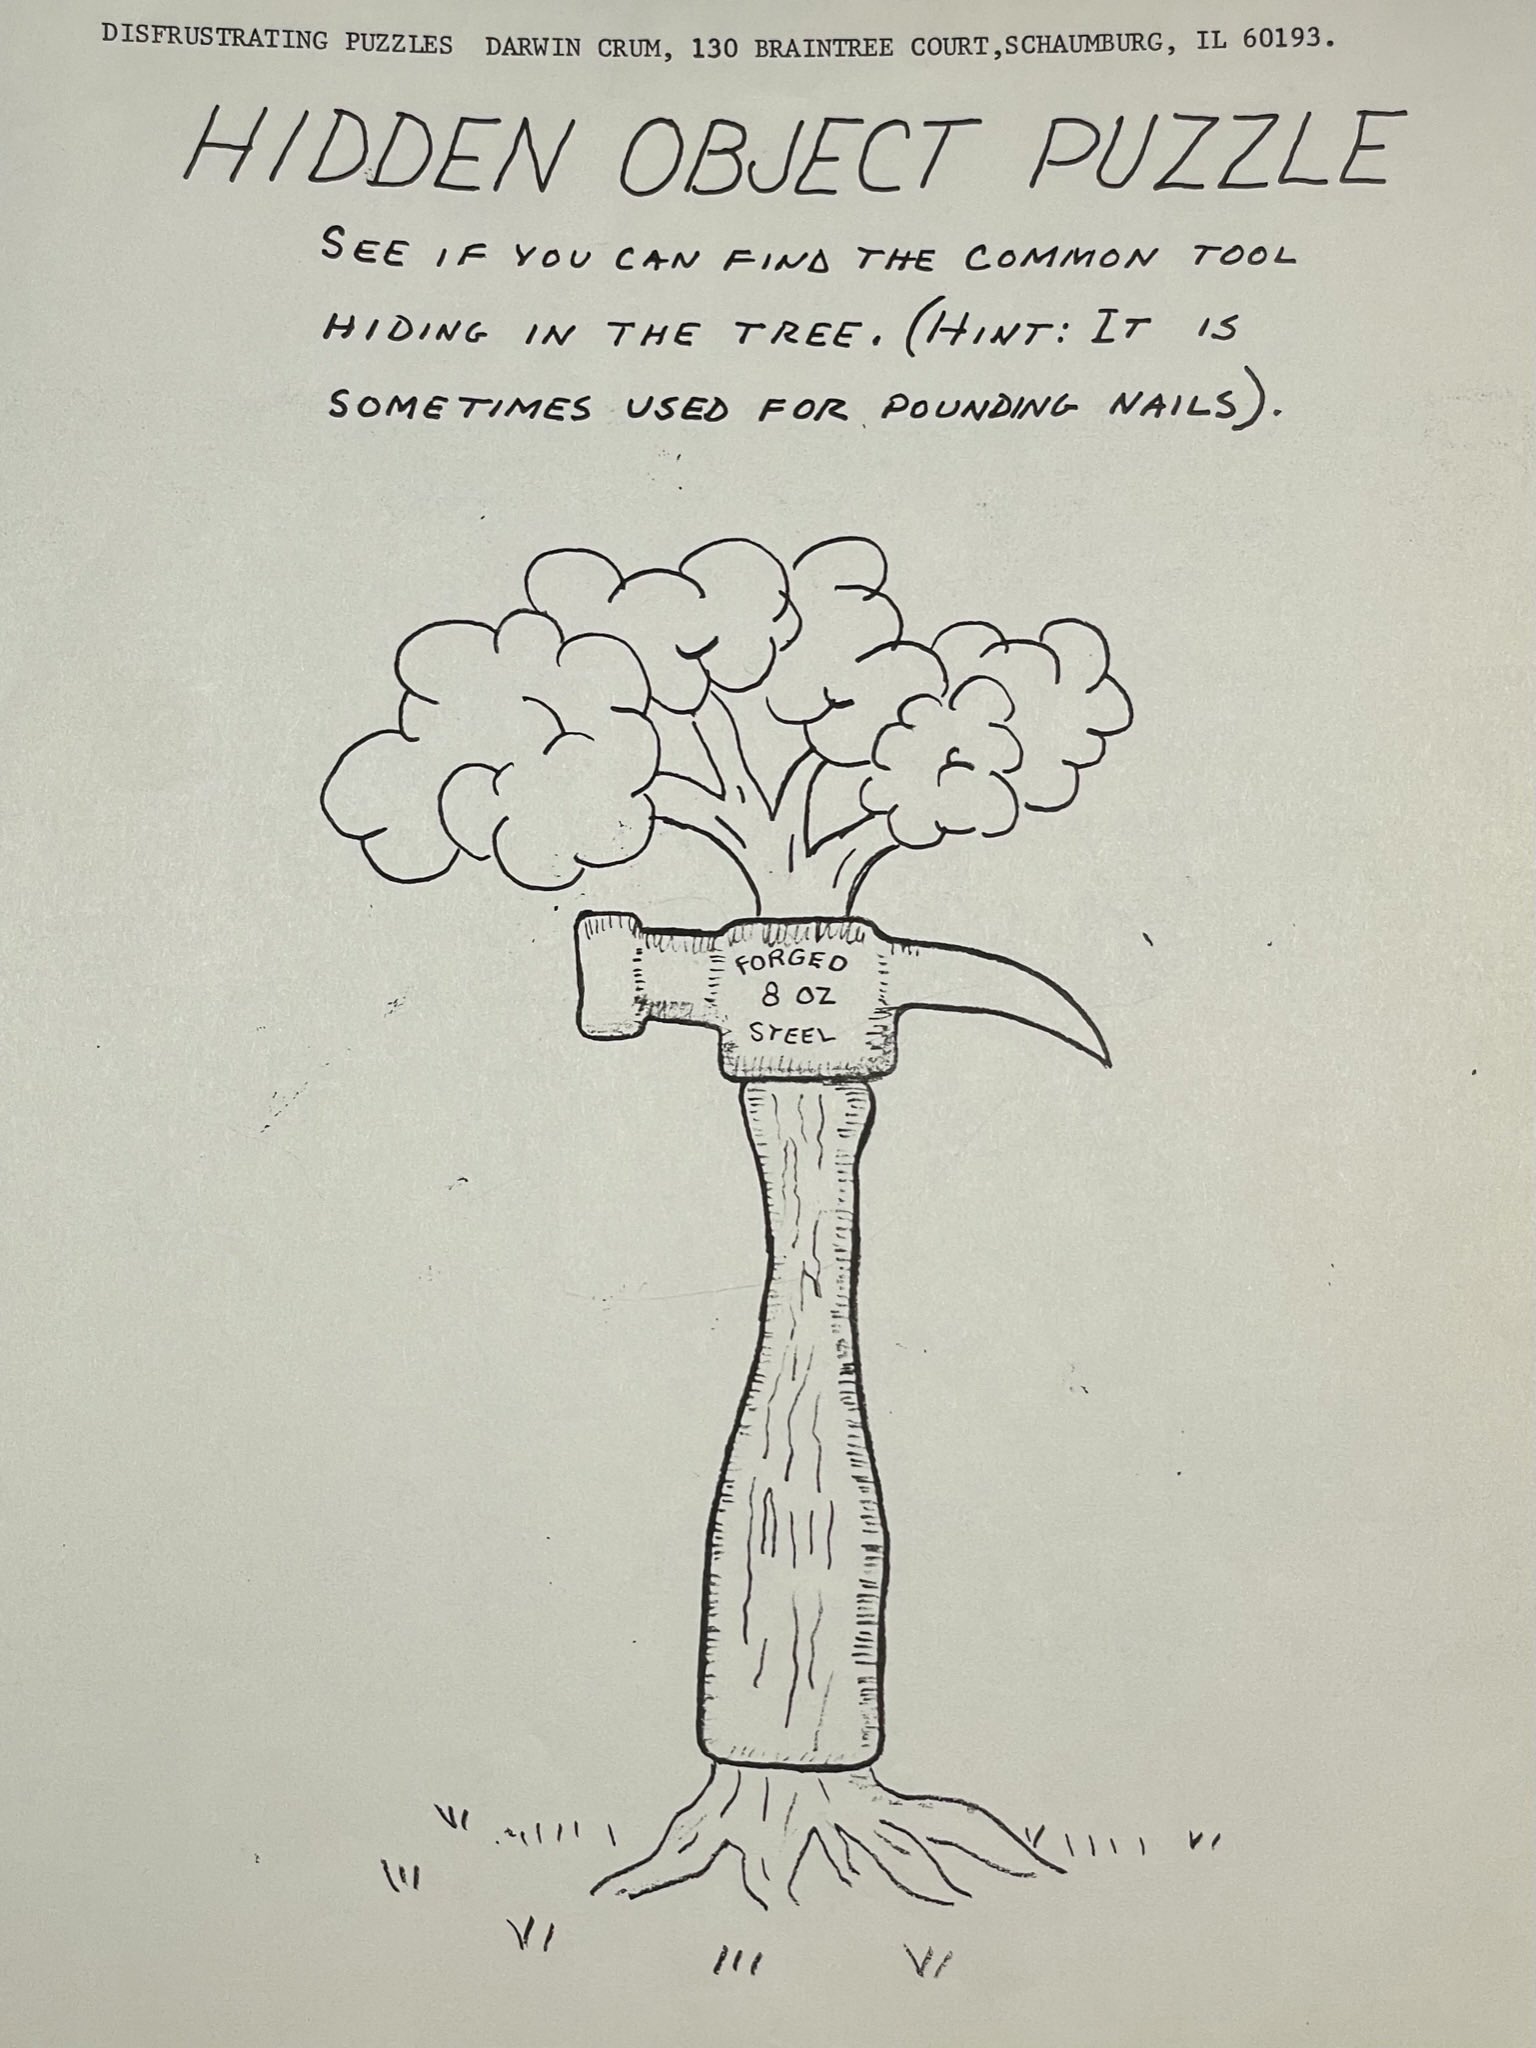 DISFRUSTRATING PUZZLES DARWIN CRUM, 130 BRAINTREE COURT,SCHAUMBURG, IL 60193.
HIDDEN OBJECT PUZZLE
SEE IF YOU CAN FIND THE COMMON TOOL
HIDING IN THE TREE. (HINT: IT IS
SOMETIMES USED FOR POUNDING NAILS).
FORGED
8 OZ
STEEL